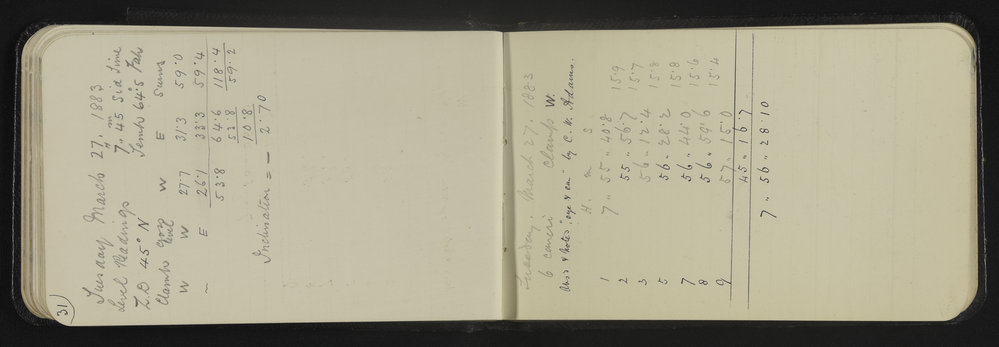 31
Tuesday March 27, 1883
Level Readings 7 h 45 m Sid Time
Z.D 45° N Temp 64°.5 Fahr
Clamp Grey level W E Sums
W W 27.7 31.3 59.0
~ E 26.1 33.3 59.4
53.8 64.6 118.4
53.8 59.2
10.8
Inclination = - 2.70
Tuesday. March 27. 1883
6 cancri Clamp W.
Obsn & notes "eye & ear" by C. W. Adams.
H. m S
1 7 " 55 " 40.8 15.9
2 55 " 56.7 15.7
3 56 " 12.4 15.8
5 56 " 28.2 15.8
7 56 " 44.0 15.6
8 56 " 59.6 15.4
9 57 " 15.0
45 " 16.7
7 " 56 " 28.10